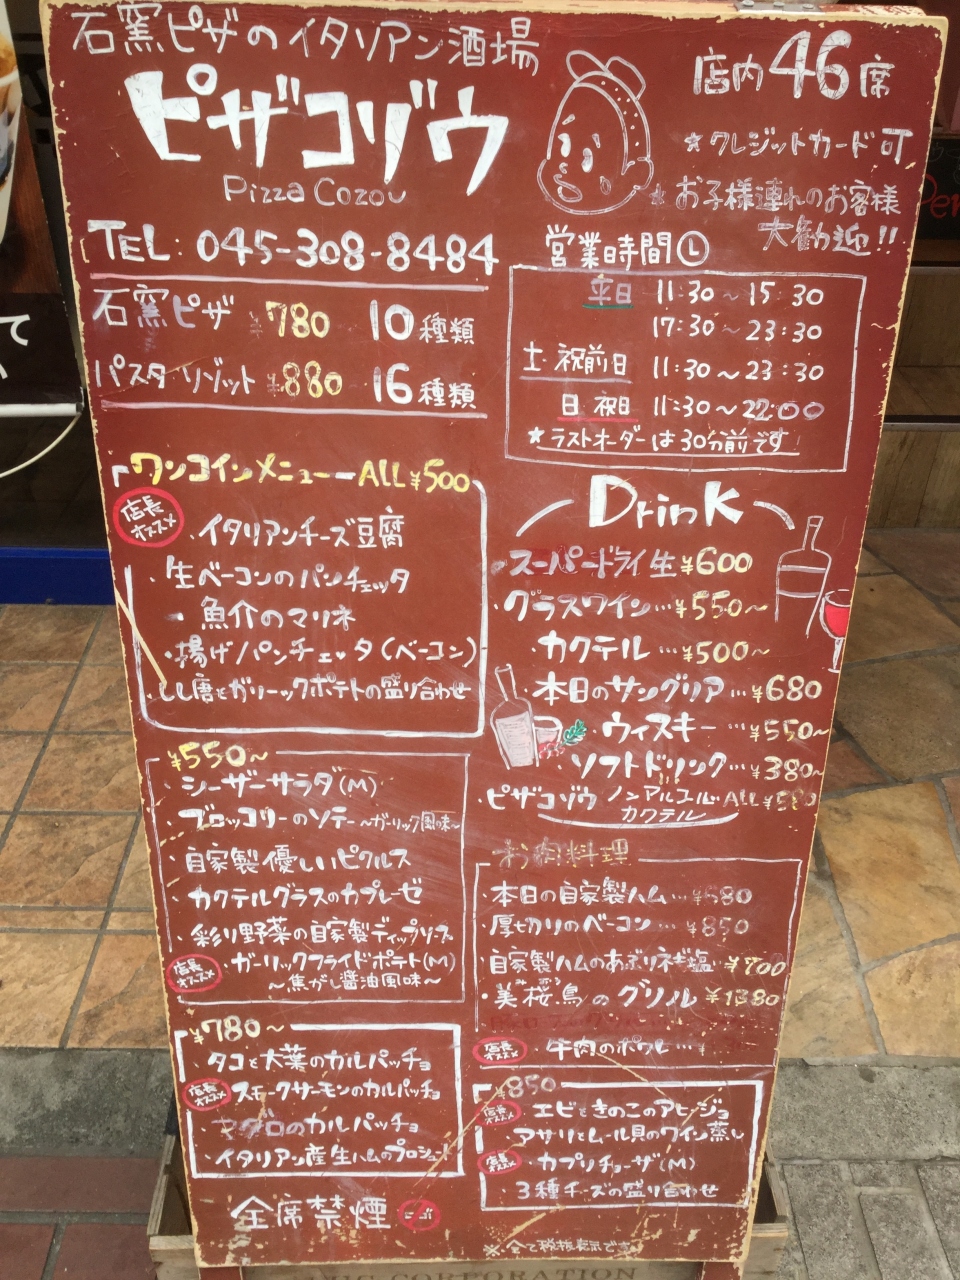 石窯ピザのイタリアン酒場
ピザコゾウ
Pizza Cozou
TEL: 045-308-8484
石窯ピザ ¥780 10種類
パスタ リゾット ¥880 16種類
店内46席
★クレジットカード可
★お子様連れのお客様
大歓迎!!
営業時間
平日 11:30~15:30
17:30~23:30
土・祝前日 11:30~23:30
日 祝日 11:30~22:00
★ラストオーダーは30分前です
ワンコインメニュー ALL¥500
店長オススメ
・イタリアンチーズ豆腐
・生ベーコンのパンチェッタ
・魚介のマリネ
・揚げパンチェッタ(ベーコン)
・しし唐とガーリックポテトの盛り合わせ
¥550~
・シーザーサラダ(M)
・ブロッコリーのソテー~ガーリック風味~
・自家製優しいピクルス
・カクテルグラスのカプレーゼ
・彩り野菜の自家製ディップソース
店長オススメ
・ガーリックフライドポテト(M)
~焦がし醤油風味~
¥780~
・タコと大葉のカルパッチョ
店長オススメ
スモークサーモンのカルパッチョ
・マグロのカルパッチョ
・イタリアン産生ハムのプロシュート
全席禁煙
Drink
・スーパードライ生 ¥600
・グラスワイン…¥550~
カクテル…¥500~
・本日のサングリア…¥680
・ウィスキー…¥550~
・ソフトドリンク…¥380~
・ピザコゾウ ノンアルコール ALL
カクテル
お肉料理
・本日の自家製ハム…¥680
・厚切りのベーコン…¥850
・自家製ハムのあぶりネギ塩 ¥700
・美桜鳥のグリル ¥1380
店長オススメ
・牛肉のポワレ…¥
¥850
店長オススメ
・エビときのこのアヒージョ
アサリとムール貝のワイン蒸し
店長オススメ
・カプリチョーザ(M)
・3種チーズの盛り合わせ
※全て税抜表示です
CORPORATION